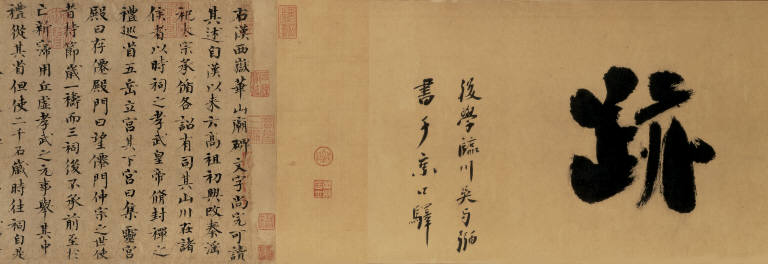 跡
後學臨川吳与弼
書于口驛
右漢西嶽華山廟碑文字尚完可讀
其述自漢以來云高祖初興改秦淫
祀太宗承循各詔有司其山川在諸
侯者以時祠之孝武皇帝脩封禪之
禮巡省五岳立宮其下宮曰集靈宮
殿曰存僊殿門曰望僊門仲宗之世使
者持節歲一禱而三祠後不承前至於
亡新寖用丘虛孝武之元事舉其中
禮從其省但使二千石歲時往祠自是